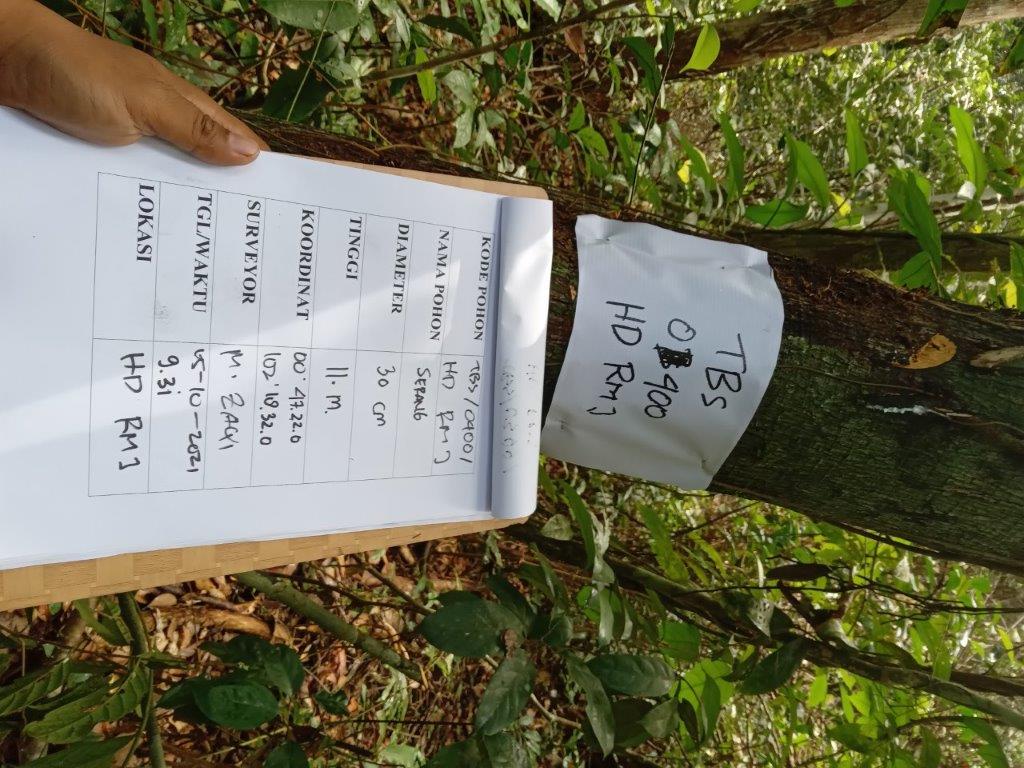 TBS
0 400
HD RMJ
KODE POHON TBS/0400/
HD RMJ
NAMA POHON SERANG
DIAMETER 30 cm
TINGGI 11. M.
KOORDINAT 00°47.22.0
102°18.32.0
SURVEYOR M. ZAQI
TGL/WAKTU 05-10-2021
9.31
LOKASI HD RMJ